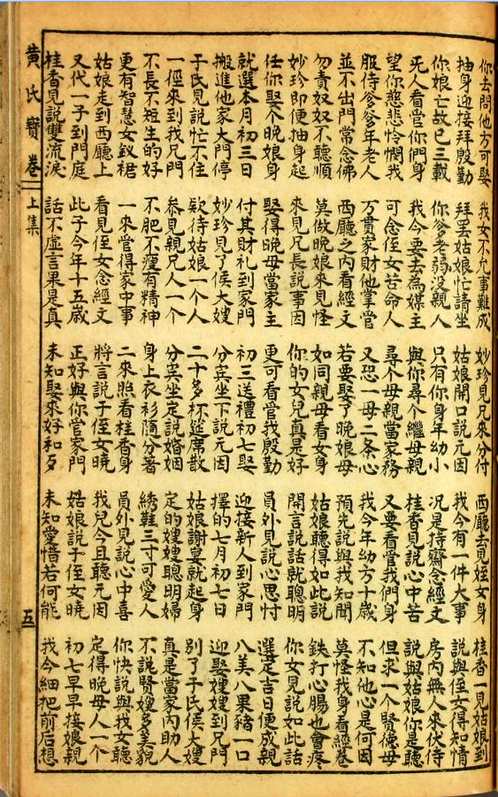 你去問他方可娶 我女不允事難成 妙珍見兄來分付 西廳去見姪女身 桂香一見姑娘到
抽身迎接拜殷勤 拜罢姑娘忙請坐 姑娘開口說元因 我今有一件大事 說與侄女得知情
你娘亡故已三載 你爹老弱没親人 只有你身年幼小 况是持齋念經文 房内無人來伏侍
死人看管你們身 我今要去為媒主 與你尋个継母親 桂香見說心中苦 說與姑娘你是聽
望你慈悲怜憫我 可念侄女苦命人 尋个母親當家務 又要看管我們身 但求一个賢德母
服侍爹爹年老人 万貫家財他掌管 又恐一母二条心 我今年幼方十歲 不知他心是何因
並不出門常念佛 西廳之内看經文 若要娶了晚娘母 預先說與我知聞 莫怪我身看經卷
勿責奴奴不聽順 莫做晚娘來見怪 如同親母看女身 姑娘聽得如此說 鉄打心腸也會疼
妙珍即便抽身起 來見兄長說事因 你的女兒真是好 開言說話就聰明 你女見說如此話
任你娶个晚娘身 娶得晚母當家主 更可看管我殷勤 員外見說心思忖 選定吉日便成親
就選本月初三日 付其財礼到家門 初三送禮初七娶 迎接新人到家門 八美八果豬一口
搬進他家大門停 妙珍見了侯大嫂 分㝠坐下說元因 擇的七月初七日 迎娶嫂嫂到兄門
于氏見說忙不住 欵待姑娘一个人 二十多杯筵席散 姑娘謝宴就起身 別了于氏侯大嫂
一徑來到我兄門 叅見親兄人一个 分㝠坐定說婚姻 定的嫂嫂聰明婦 真是當家内助人
不長不短生的好 不肥不瘦有精神 身上衣衫随分著 綉鞋三寸可愛人 不說賢嫂多美貌
更有智慧女釵裙 一來當得家中事 二來照看桂香身 員外見說心中喜 你快說與我女聽
姑娘走到西廳上 看見侄女念經文 將言說于侄女曉 我兒今且聽元因 定得晚母人一个
又代一子到門庭 此子今年十五歲 正好與你當家門 姑娘說于侄女曉 初七早早接娘親
桂香見說雙流淚 話不虛言果是真 未知娶來好和歹 未知愛惜若何能 我今細把前后想
黄氏寶卷 上集 五